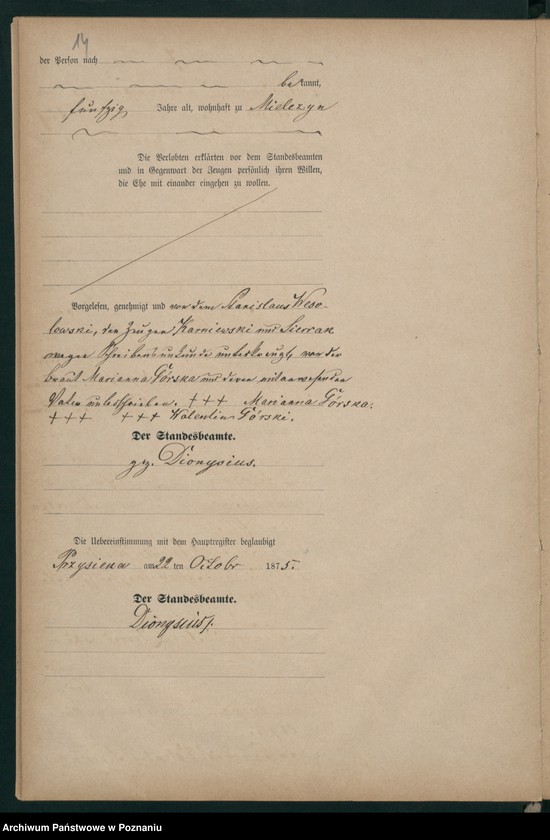 14
der Person nach
bekannt,
fünfzig Jahre alt, wohnhaft zu Mielczyn
Die Verlobten erklärten vor dem Standesbeamten
und in Gegenwart der Zeugen persönlich ihren Willen,
die Ehe mit einander eingehen zu wollen.
Vorgelesen, genehmigt und von dem Stanislaus Weso-
lowski, den Zeugen Karniewski und
wegen Schreibensunkunde unterkreuzt, von der
Braut Marianna Górska und deren mitanwesenden
Vater unterschrieben. +++ Marianna Górska.
+++ +++ Valentin Górski.
Der Standesbeamte.
gez. Dionysius.
Die Uebereinstimmung mit dem Hauptregister beglaubigt
am 22 ten Octobr 1875.
Der Standesbeamte.
Dionysius.
Archiwum Państwowe w Poznaniu